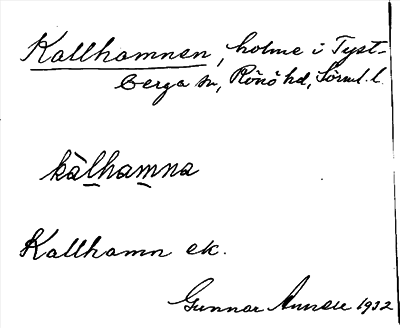 Kallhamnen, holme i Tyst-
berga sn, Rönö hd, Sörml. l.
kàlhamna
Kallhamn ek.
Gunnar 1932